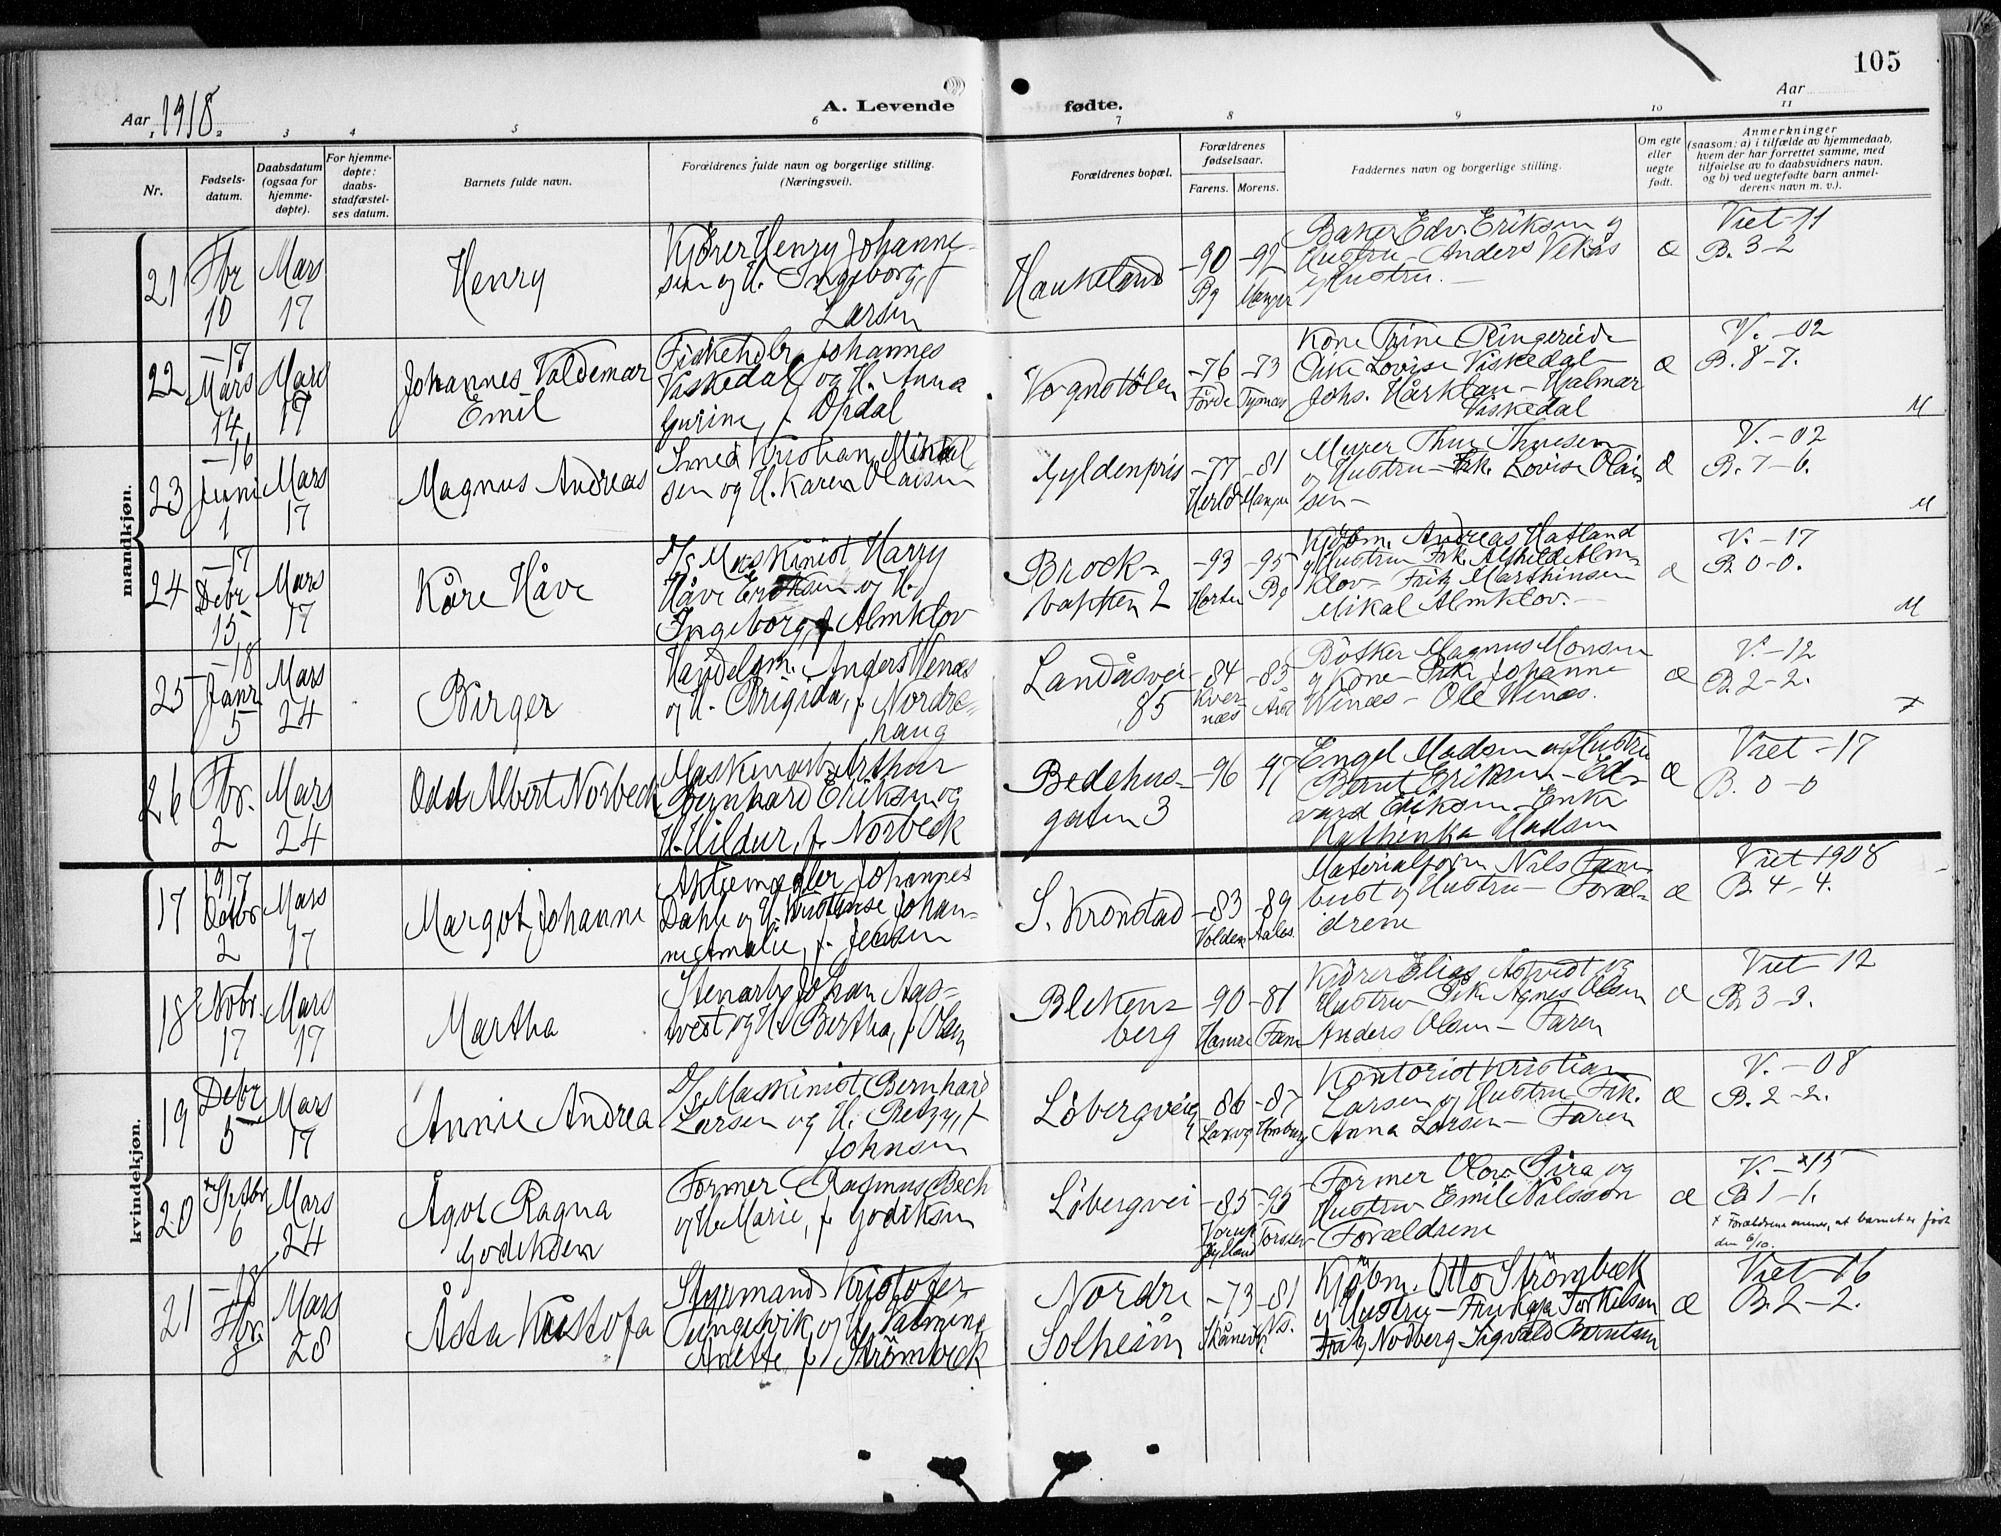 105
Aar 1918
A. Levende fødte.
Aar
1 2 3 4 5 6 7 8 9 10 11
Nr.
Fødsels-
datum.
Daabsdatum
(ogsaa for
hjemme-
døpte).
For hjemme-
døpte:
daabs-
stadfæstel-
ses datum.
Barnets fulde navn.
Forældrenes fulde navn og borgerlige stilling.
(Næringsvei).
Forældrenes bopæl.
Forældrenes
fødselsaar.
Farens. Morens.
Faddernes navn og borgerlige stilling.
Om egte
eller
uegte
født.
Anmerkninger
(saasom: a) i tilfælde av hjemmedaab,
hvem der har forrettet samme, med
tilføielse av to daabsvidners navn.
og b) ved uegtefødte barn anmel-
derens navn m. v.).
mandkjøn.
21
Fbr
10
Mars
17
Henry
Kjører Henry Johanne-
sen og H. Ingeborg, f.
Larsen
Haukeland
-90
Bg
-92
Manger
Baker Edv. Eriksen og
Hustru - Anders Vekås
og Hustru. -
æ
Viet -11
B. 3-2
22
-17
Mars
14
Mars
17
Johannes Valdemar
Emil
Fiskehdlr. Johannes
Viskedal og H. Anna
Gurine, f. Opdal
Vognstølen
-76
Førde
-73
Kone Trine Ringereide
Pike Lovise Viskedal
Johs. Hårklau - Hjalmar
Viskedal
æ
V. -02
B. 8-7.
M
23
-16
Juni
1
Mars
17
Magnus Andreas
Smed Kristian Mikkel
sen og H. Karen Olaisen
Gyldenpris
-77
Herlø
-81
Manger
Murer Thue Thuesen
og Hustru - Frk. Lovise Olai
sen -
æ
V. -02
B. 7-6.
M
24
-17
Debr
15
Mars
17
Kåre Håve
D/S Maskinist Harry
Håve Eriksen og H.
Ingeborg, f. Almklov
Brock-
bakken 2
-93
Horten
-95
Bg
Kjøbm. Andreas Hatland
og Hustru Frk. Alfhild Alm-
klov - Fritz Marthinsen
Mikal Almklov. -
æ
V. -17
B. 0-0.
M
25
-18
Janr
5
Mars
24
Birger
Handelsm. Anders Venæs
og H. Brigida, f. Nordre-
haug
Landåsvei
85
-84
Kver-
næs
-83
Bøtker Magnus Monsen
og Kone - Pike Johanne
Winæs - Ole Winæs.
æ
V. -12
B. 2-2.
26
Fbr.
2
Mars
24
Odd Albert Norbeck
Maskinarb. Arthur
Bernhard Eriksen og
H. Hildur, f. Norbeck
Bedehus-
gaten 3
-96
97
Engel Madsen og Hustru
Berut Eriksen - Ed-
vard Eriksen - Enke
Kathinka Madsen
æ
Viet -17
B. 0-0
kvindekjøn.
17
1917
Octbr
2
Mars
17
Margot Johanne
Aktiemægler Johannes
Dahle og H. Kristense Johan-
ne Amalie, f. Jensen
S. Kronstad
-83
Volden
-89
Aales.
Materialforv. Nils Fane-
bust og Hustru - Foræl-
drene
æ
Viet 1908
B. 4-4.
18
Nobr.
17
Mars
17
Martha
Stenarb. Johan Aas-
tvedt og H. Bertha, f. Olsen
Blekens-
berg
-90
Hamre
-81
Fane
Kjører Elias Åstvedt og
Hustru Pike Agnes Olsen
Anders Olsen - Faren
æ
Viet -12
B. 3-3.
19
Debr
5
Mars
17
Annie Andrea
D/S Maskinist Bernhard
Larsen og H. Betzy, f.
Johnsen
Løbergveig
-86
Laxvg
-87
Hamburg
Kontorist Kristian
Larsen og Hustru - Frk.
Anna Larsen - Faren
æ
V. -08
B. 2-2.
20
Sptbr
6
Mars
24
Ågot Ragna
Godiksen
Former Rasmus Bech
og H. Marie, f. Godiksen
Løbergvei
-85
Vorup
Jylland
-95
Former Olav Pira og
Hustru Emil Nilsson
Forældrene
æ
V. -15
B 1-1.
x Forældrene mener, at barnet er født
den 6/10.
21
-18
Fbr.
8
Mars
28
Åsta Kristofa
Styrmand Kristofer
Tungesvik og H. Valmine
Anette, f. Strømbeck
Nordre
Solheim
-73
Skånevik
-81
Ns.
Kjøbm. Otto Strømbeck
og Hustru - Fru Kaja Torkilsen
Fritz Nodberg - Sigvald Berntsen
æ
Viet -16
B. 2-2.